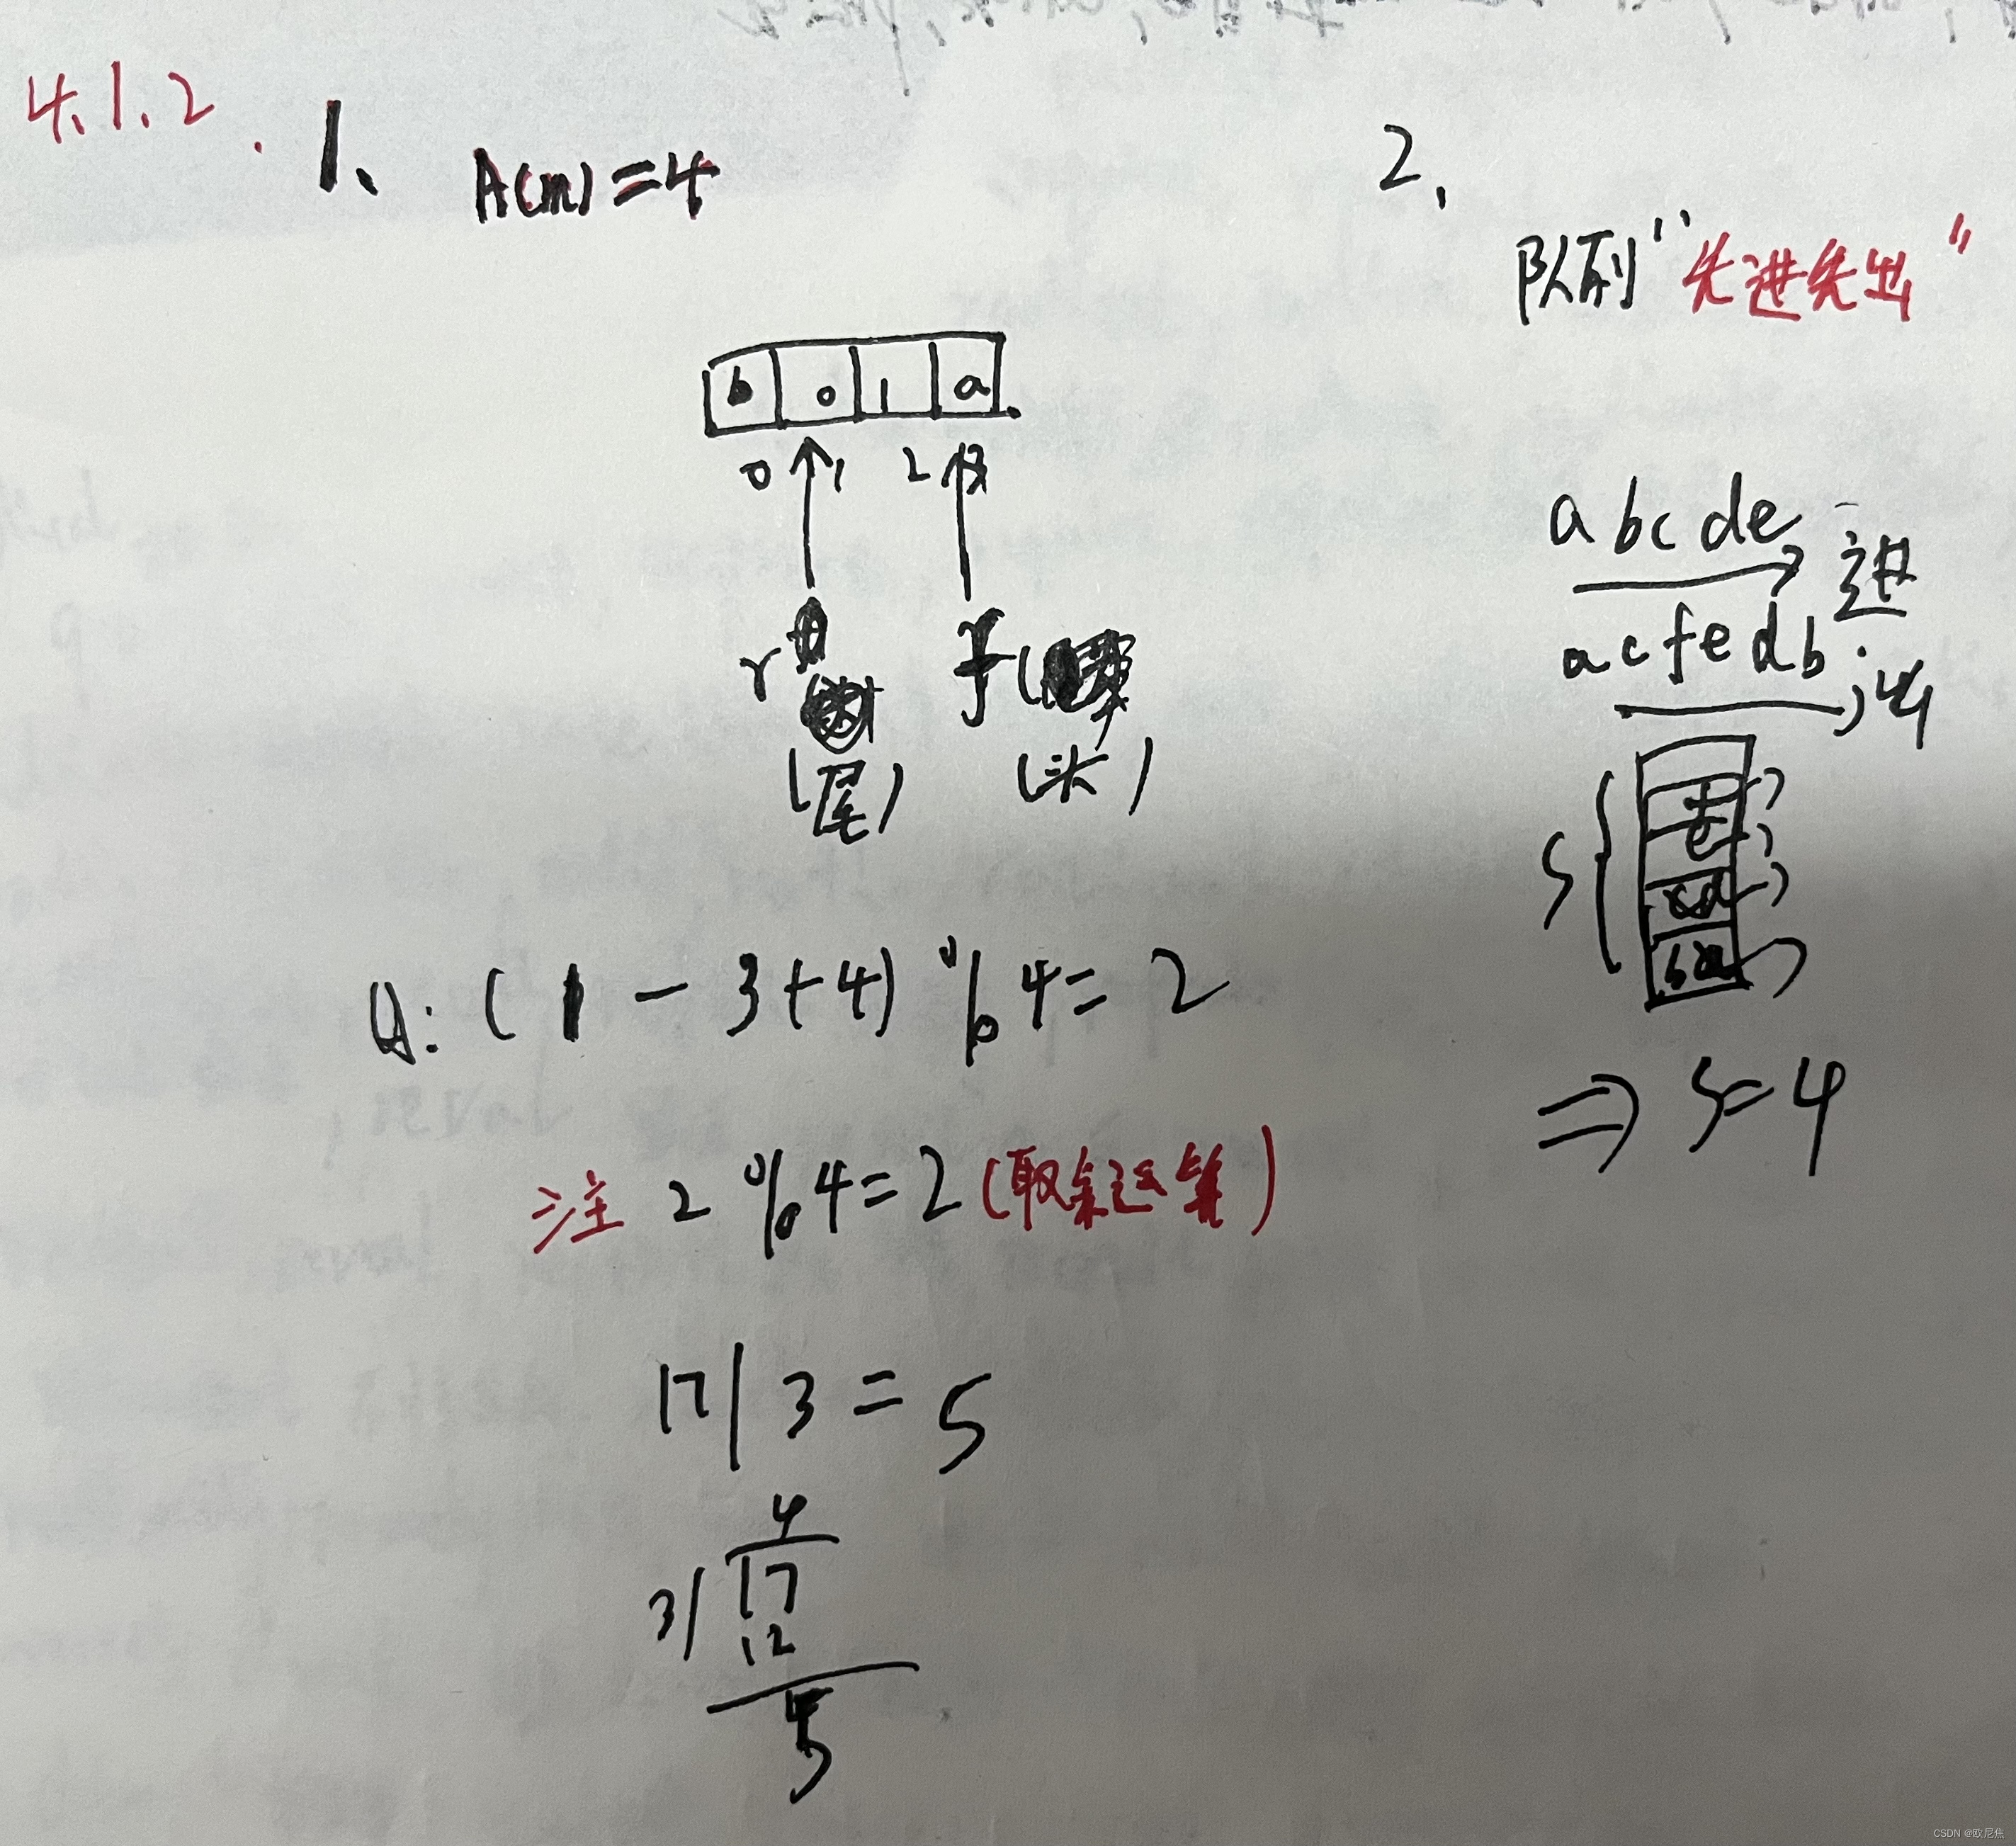 4.1.2.
1、
A(m)=4
b 0 1 a
0 1 2 3
r f
(尾) (头)
Q: (1-3+4)%4=2
注 2%4=2(取余运算)
17/3=5
4
3/17
12
5
2.
队列"先进先出"
abcde 进
acfedb 出
S
f
e
cd
ba
⇒ S=4
CSDN @欧尼焦